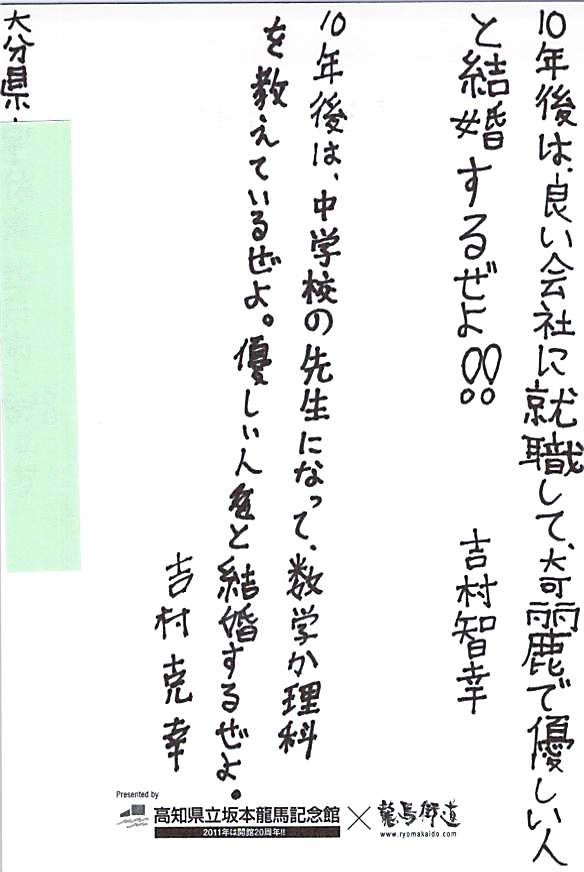 10年後は、良い会社に就職して、綺麗で優しい人
と結婚するぜよ!!
吉村智幸
10年後は、中学校の先生になって、数学か理科
を教えているぜよ。優しい人と結婚するぜよ。
吉村克幸
大分県
Presented by
高知県立坂本龍馬記念館
2011年は開館20周年!!
×
龍馬街道
www.ryomakaido.com